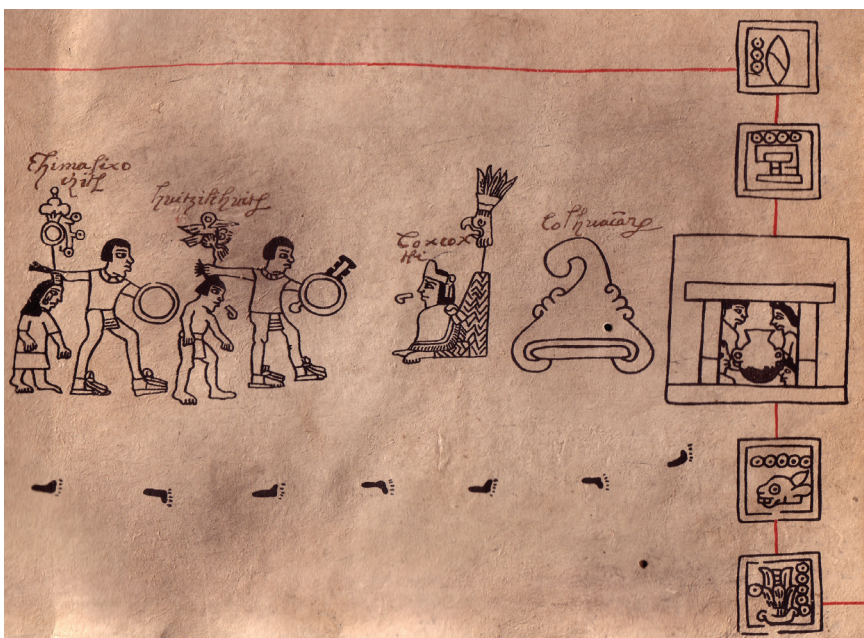 Chimalixo
chitl
huitzilihuitl
Coxcox
tli
Colhuacan